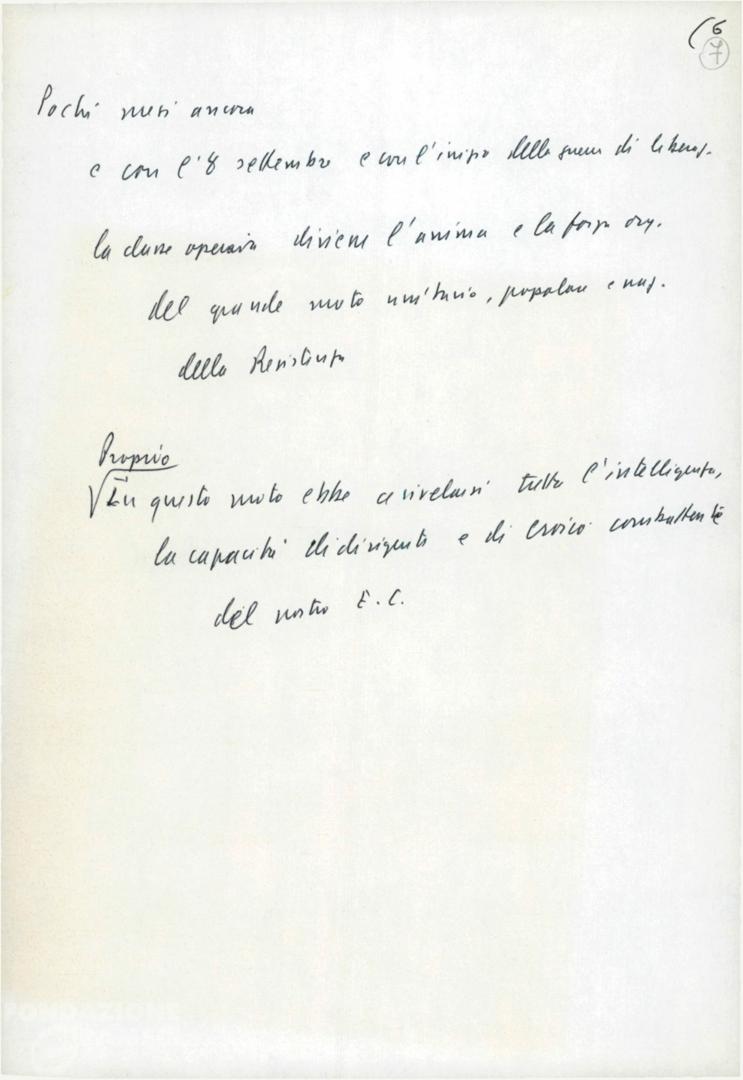 (6
7
Pochi mesi ancora
e con l'8 settembre e con l'inizio della guerra di liberaz.
la classe operaia diviene l'anima e la forza org.
del grande moto unitario, popolare e naz.
della Resistenza
Proprio
√In questo moto ebbe a rivelarsi tutta l'intelligenza,
la capacità di dirigente e di eroico combattente
del nostro E. C.
FONDAZIONE